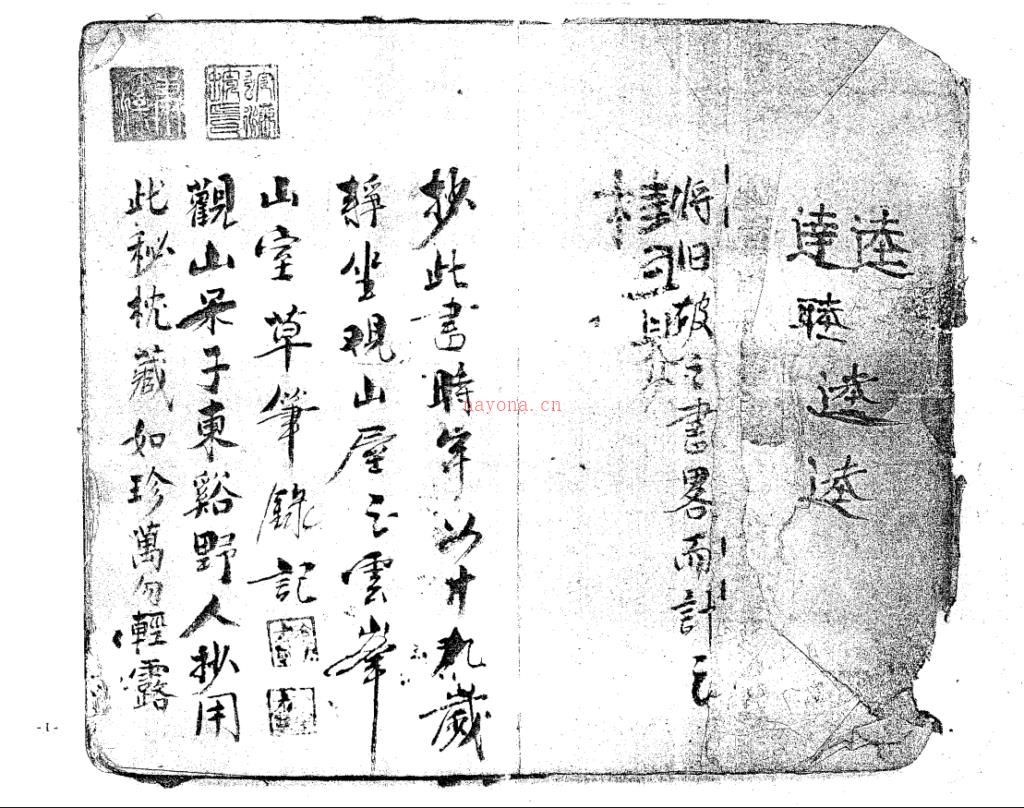 逵
達
睦
逵
逵
将旧破之書畧而計之
抄此書時年以廿九歲
靜坐观山屋之雲峯
山室草筆錄記
觀山呆子東谿野人抄用
此秘枕藏如珍萬勿輕露
nayona.cn
-1-